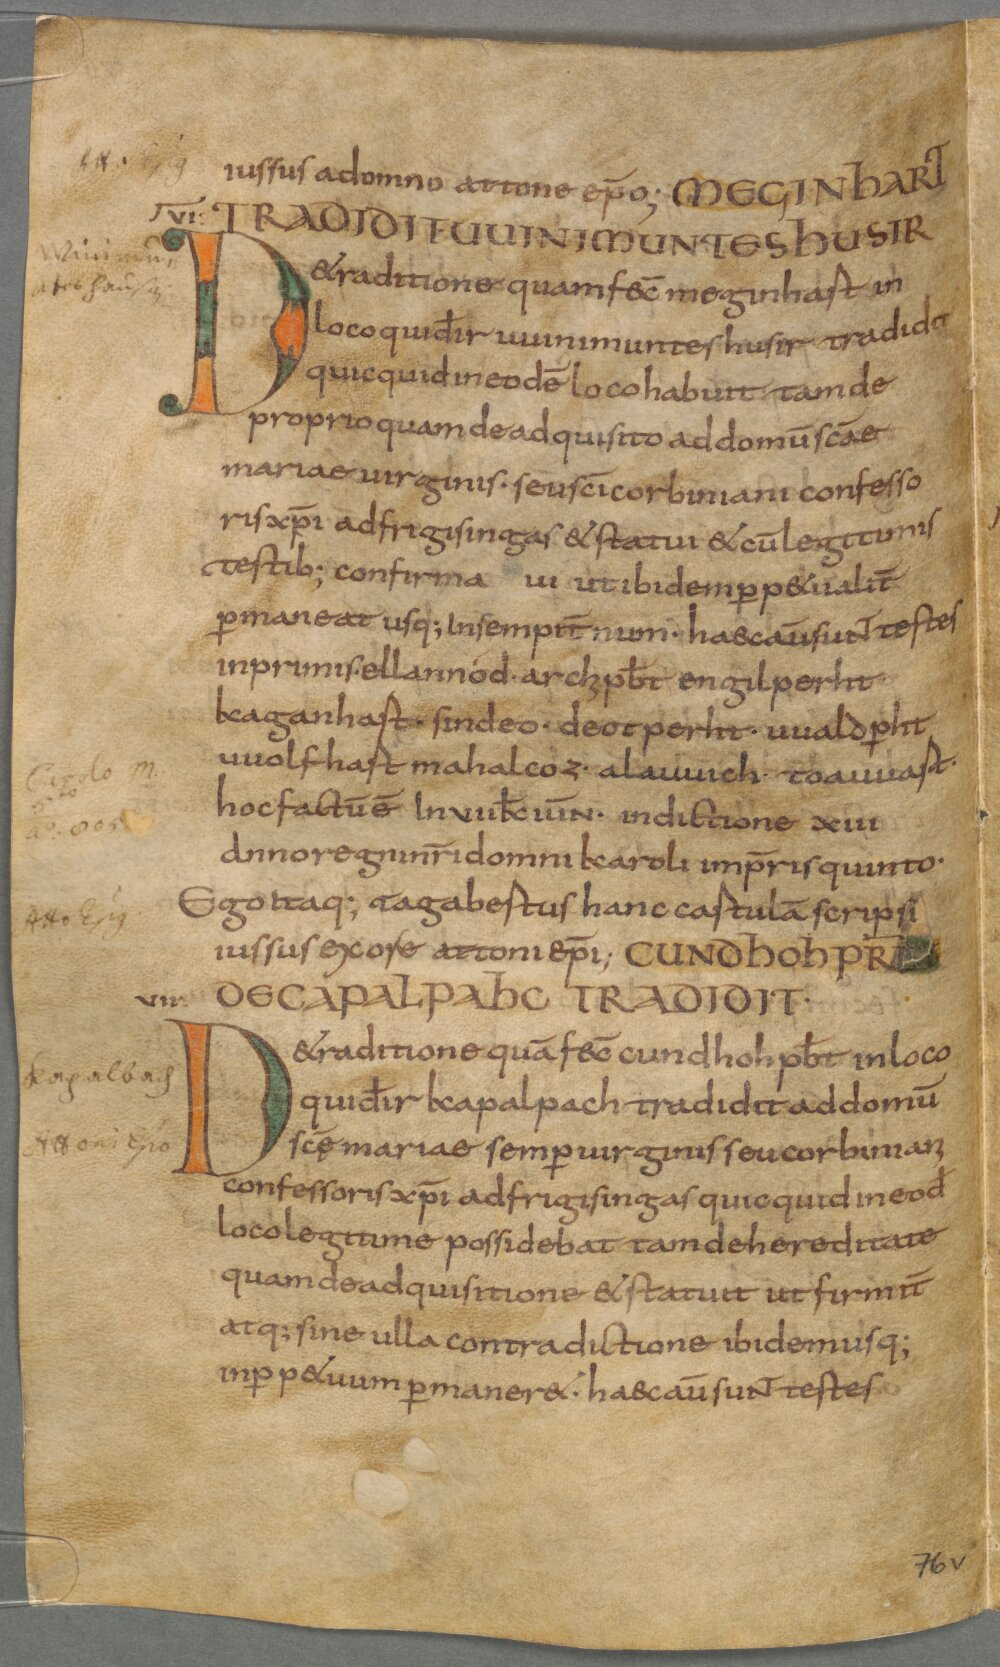 Atto Epĩg
iussus a domno attone ep̄o; MEGINHART
VI. TRADIDIT UUINIMUNTESHUSIR
De traditione quam fec̄ meginhart in
loco qui dr̄ uuinimunteshusir tradidit
quicquid in eodē loco habuit tam de
proprio quam de adquisito ad domū scāe
mariae uirginis · seu sc̄i corbiniani confesso
ris xp̄i ad frigisingas & statui & cū legitimis
testib; confirma ui ut ibidem ꝑp&ualit̄
ꝑmaneat usq; In sempit̄num · haec aū sunt testes
inprimis · ellannod · archip̄bt engilperht ·
kaganhart · sindeo · deotperht · uualdꝑht
uuolfhart mahalcoz · alauuich · toauuart ·
hoc factū ē In VII kł IUN · indictione XIII
Anno regni nr̄i domni karoli imp̄ris quinto ·
Ego itaq; tagabertus hanc cartulā scripsi
iussus ex ore attoni ep̄i; CUNDHOH PRB
VII. DE CAPALPAHC TRADIDIT ·
De traditione quā fec̄ cundhoh p̄bt in loco
qui dr̄ kapalpach tradidit ad domū
scē mariae semꝑ uirginis seu corbiniani
confessoris xp̄i ad frigisingas quicquid in eod̄
loco legitime possidebat tam de hereditate
quam de adquisitione & statuit ut firmit̄
atq; sine ulla contradictione ibidem usq;
in ꝑp&uum ꝑmaner& · haec aū sunt testes
Kapalbach
76v